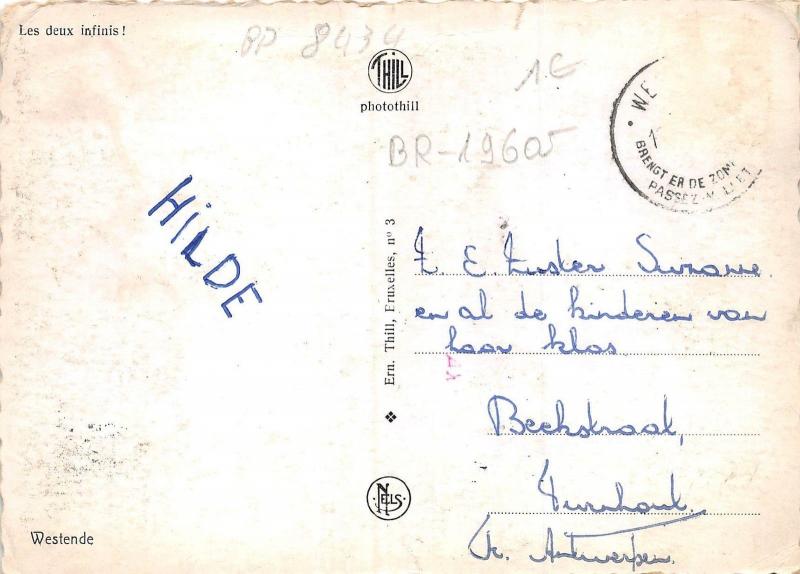 Les deux infinis !
BP 8434
THILL
photothill
1€
BR-19605
• WE
1
BRENGT ER DE ZOM
PASSEZ-Y L'ET
HILDE
Ern. Thill, Bruxelles, nº 3
Z. E. Zuster Suzanne
en al de kinderen van
haar klas
Beekstraat,
Turnhout.
Pr. Antwerpen.
NELS
Westende